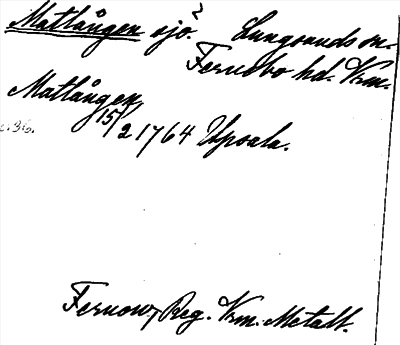 Matlången sjö? Lungsunds sn.
Fernebo hd. Vrm.
Matlången
c. 36.
15/2 1764 Upsala.
Fernow, Reg. Vrm. Metall.